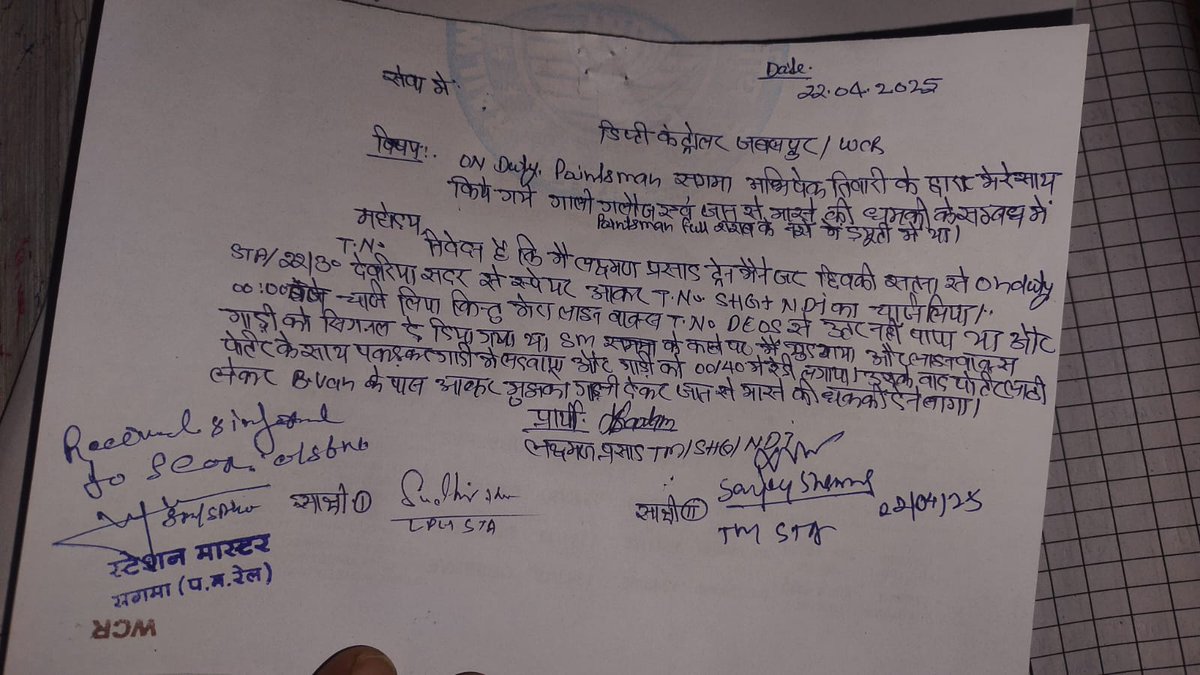 सेवा मे.
Date.
22.04.2025
डिप्टी कंट्रोलर जबलपुर / WCR
विषय:. ON Duty. Pointsman सगमा अभिषेक तिवारी के द्वारा मेरे साथ
किये गये गाली गलौज एवं जान से मारने की धमकी के सम्बध में
Pointsman full शराब के नशे में ड्यूटी में था।
महोदय,
T.No निवेदन है कि मै लक्ष्मण प्रसाद ट्रेन मैनेजर छिवकी सतना से onduty
STA/22/30 देवरिया सदर से स्पेयर आकर T.No. SHGH NDJ का चार्ज लिया।
00:00 बजे चार्ज लिया किन्तु मेरा लाइन वाक्स T.No DEOS से उतर नही पाया था और
गाड़ी को सिगनल दे दिया गया था SM सगमा के कहने पर मै और लाइन वाक्स
पोर्टर के साथ पकड़कर गाडी मे और गाडी को 00/40 मे रेडी लगाया। इसके बाद लाठी
लेकर B.Van के पास आकर मुझको गाली देकर जान से मारने की धमकी देने लागा।
प्रार्थी.
लक्ष्मण प्रसाद TM/SHG/NDJ
Received & informed
to SCOR.
SM/
स्टेशन मास्टर
सगमा (प.म.रेल)
WCR
साक्षी I
Sudhir
LPG STA
साक्षी II
Sanjay Sharma
TM STA
22/04/25